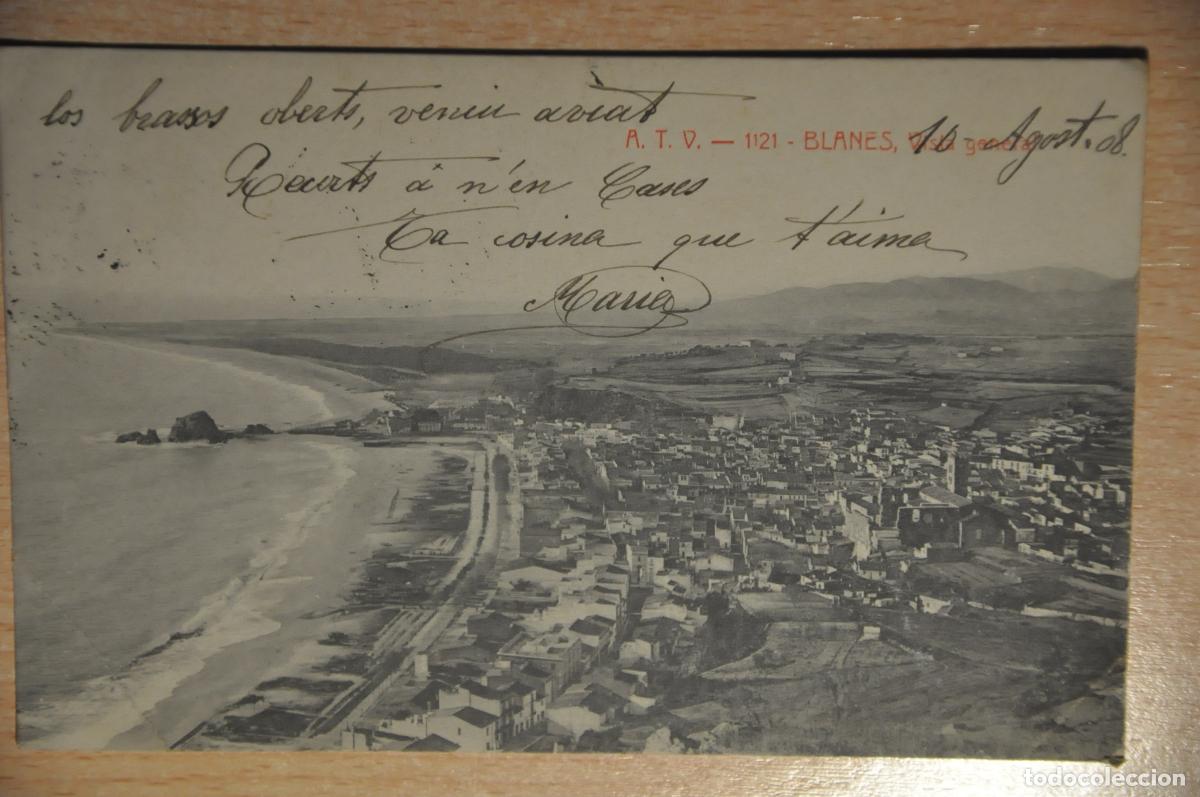 los brassos oberts, veniu aviat
A. T. V. — 1121 - BLANES, Vista general
10 - Agost. 08.
Recorts á n'en Cases
Ta cosina que t'aima
Maria
todocoleccion